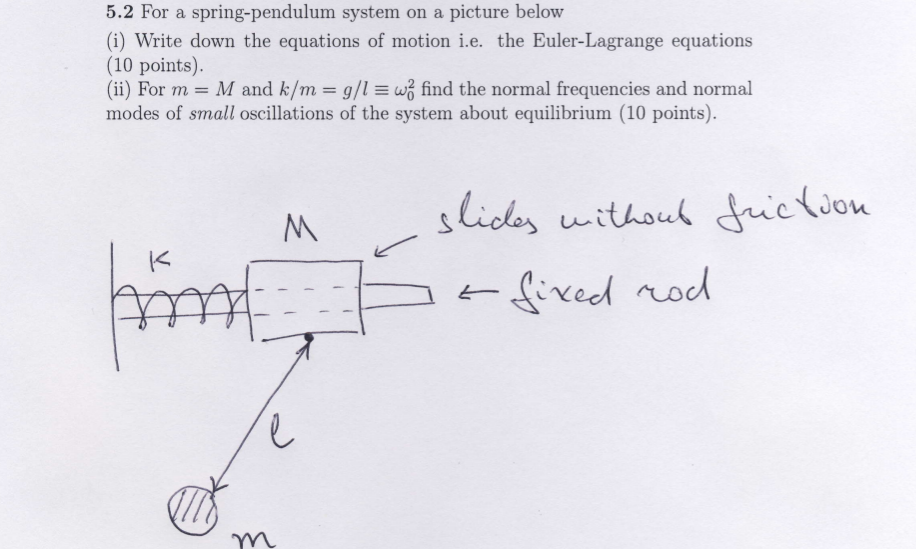 5.2 For a spring-pendulum system on a picture below
(i) Write down the equations of motion i.e. the Euler-Lagrange equations
(10 points).
(ii) For m = M and k/m = g/l ≡ ω₀² find the normal frequencies and normal
modes of small oscillations of the system about equilibrium (10 points).
slides without friction
M
K
← fixed rod
l
m